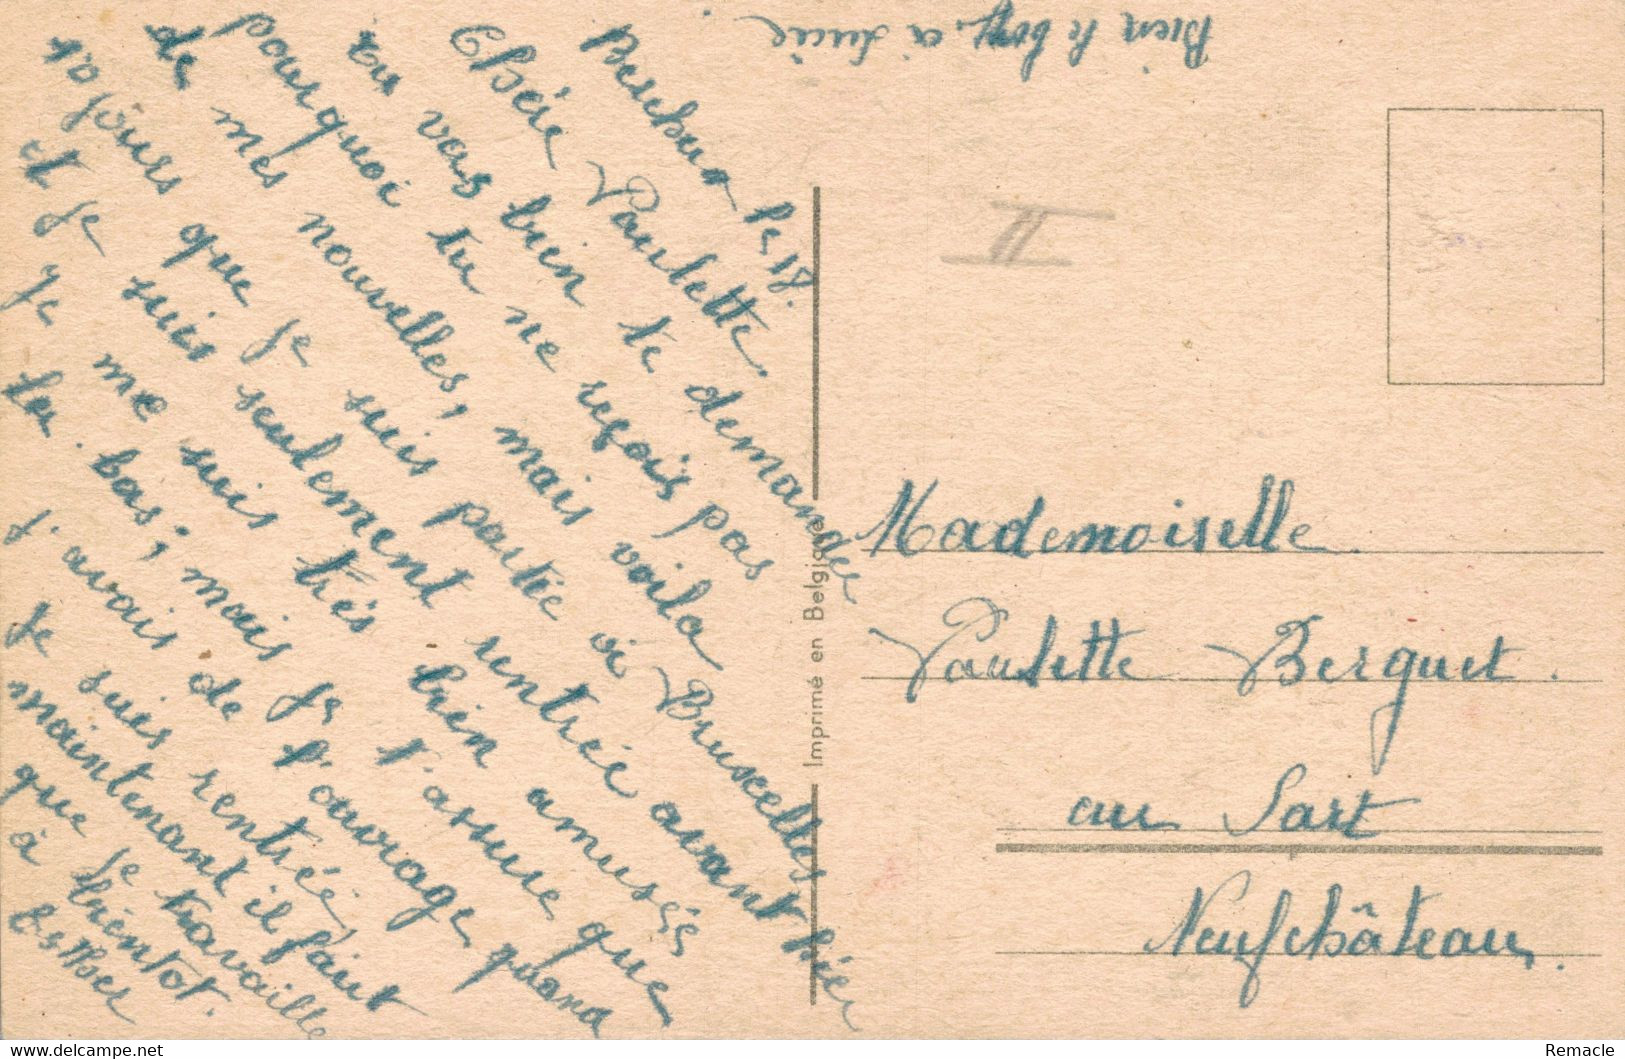 Bercheux le 18.
Chérie Paulette.
Tu vas bien te demander
pourquoi tu ne reçois pas
de mes nouvelles, mais voila
10 jours que je suis partie à Bruxelles
et je suis seulement rentrée avant hier
je me suis très bien amusée
la. bas; mais je t'assure que
j'avais de l'ouvrage quand
je suis rentrée,
maintenant il faut
que je travaille
à bientot.
Esther
Bien le bonj. à Lucie
II
Imprimé en Belgique
Mademoiselle.
Paulette Berguet.
au Sart
Neufchâteau.
delcampe.net
Remacle